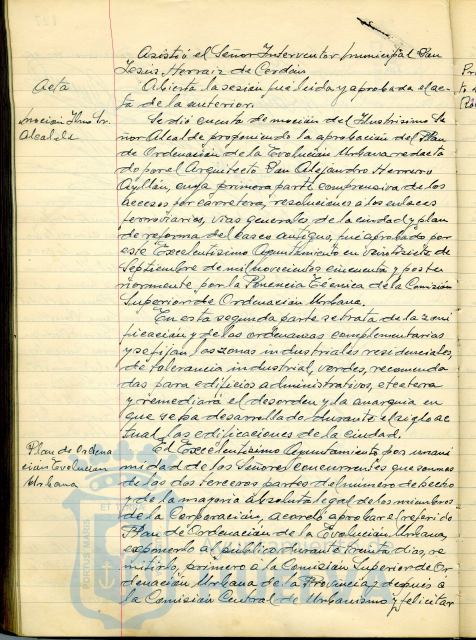 Asistió el Señor Interventor municipal Don
Jesús Herraiz de Cerdán.
Acta
Abierta la sesión fue leida y aprobada el ac-
ta de la anterior.
moción Ilmo. Sr.
Alcalde
Se dió cuenta de moción del Ilustrisimo Se-
ñor Alcalde proponiendo la aprobación del Plan
de Ordenación de la Evolución Urbana redacta-
do por el Arquitecto Don Alejandro Herrero
Ayllón, cuya primera parte comprensiva de los
accesos por carretera, resoluciones a los enlaces
ferroviarios, vias generales de la ciudad y plan
de reforma del casco antiguo, fue aprobado por
este Excelentisimo Ayuntamiento en veintiseis de
Septiembre de mil novecientos cincuenta y poste-
riormente por la Ponencia Técnica de la Comisión
Superior de Ordenación Urbana.
En esta segunda parte se trata de la zoni-
ficación y de las ordenanzas complementarias
y se fijan las zonas industriales residenciales,
de tolerancia industrial, verdes, recomenda-
das para edificios administrativos, etcetera
y remediará el desorden y la anarquia en
que se ha desarrollado durante el siglo ac-
tual las edificaciones de la ciudad.
Plan de Ordena-
ción Evolución
Urbana
El Excelentisimo Ayuntamiento por unani-
midad de los Señores concurrentes que son mas
de las dos terceras partes del número de hecho
y de la mayoria absoluta legal de los miembros
de la Corporación, acordó aprobar el referido
Plan de Ordenación de la Evolución Urbana,
exponerlo al publico durante treinta dias, re-
mitirlo, primero a la Comisión Superior de Or-
denación Urbana de la Provincia y después a
la Comisión Central de Urbanismo y felicitar
PORTUS MARIS
ET